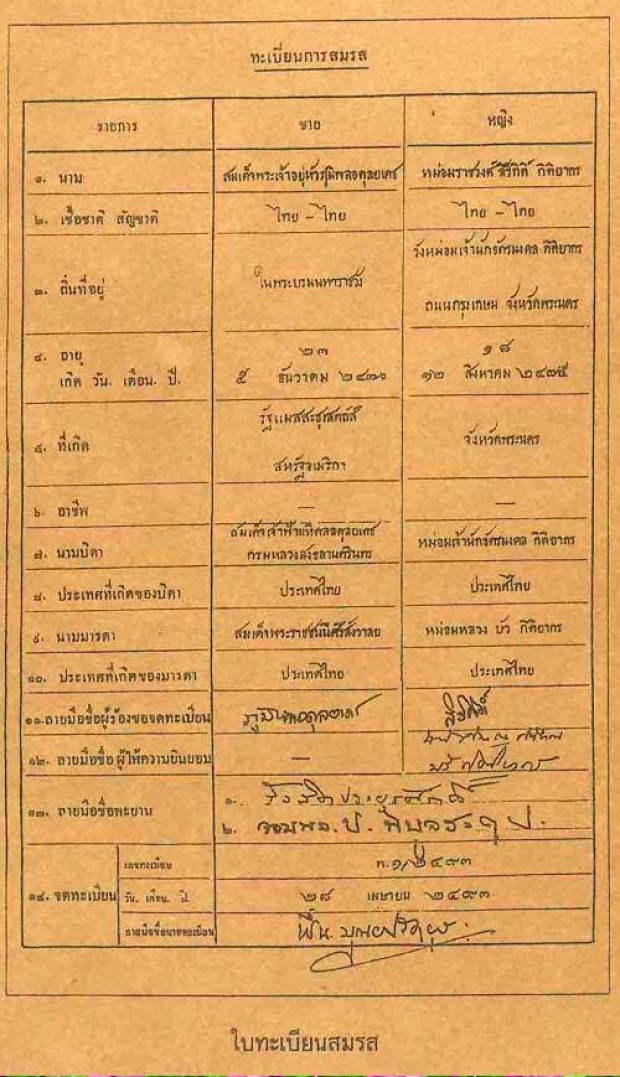 ทะเบียนการสมรส
รายการ ชาย หญิง
๑. นาม สมเด็จพระเจ้าอยู่หัวภูมิพลอดุลยเดช หม่อมราชวงศ์ สิริกิติ์ กิติยากร
๒. เชื้อชาติ สัญชาติ ไทย - ไทย ไทย - ไทย
วังหม่อมเจ้านักขัตรมงคล กิติยากร
๓. ถิ่นที่อยู่ ในพระบรมมหาราชวัง
ถนนกรุงเกษม จังหวัดพระนคร
๔. อายุ ๒๓ ๑๘
เกิด วัน. เดือน. ปี. ๕ ธันวาคม ๒๔๗๐ ๑๒ สิงหาคม ๒๔๗๕
รัฐแมสสะชูเสตต์ส์
๕. ที่เกิด จังหวัดพระนคร
สหรัฐอเมริกา
๖. อาชีพ — —
สมเด็จเจ้าฟ้ามหิดลอดุลยเดช
๗. นามบิดา กรมหลวงสงขลานครินทร หม่อมเจ้านักขัตรมงคล กิติยากร
๘. ประเทศที่เกิดของบิดา ประเทศไทย ประเทศไทย
๙. นามมารดา สมเด็จพระราชชนนีศรีสังวาลย หม่อมหลวง บัว กิติยากร
๑๐. ประเทศที่เกิดของมารดา ประเทศไทย ประเทศไทย
๑๑. ลายมือชื่อผู้ร้องขอจดทะเบียน ภูมิพลอดุลยเดช สิริกิติ์
๑๒. ลายมือชื่อ ผู้ให้ความยินยอม —
๑.
๑๓. ลายมือชื่อพยาน
๒. จอมพล. ป. พิบูลสงคราม
เลขทะเบียน พ. ๑/๒๔๙๓
๑๔. จดทะเบียน วัน. เดือน. ปี ๒๘ เมษายน ๒๔๙๓
ลายมือชื่อนายทะเบียน ฟื้น. บุณยปรัตยุธ.
ใบทะเบียนสมรส